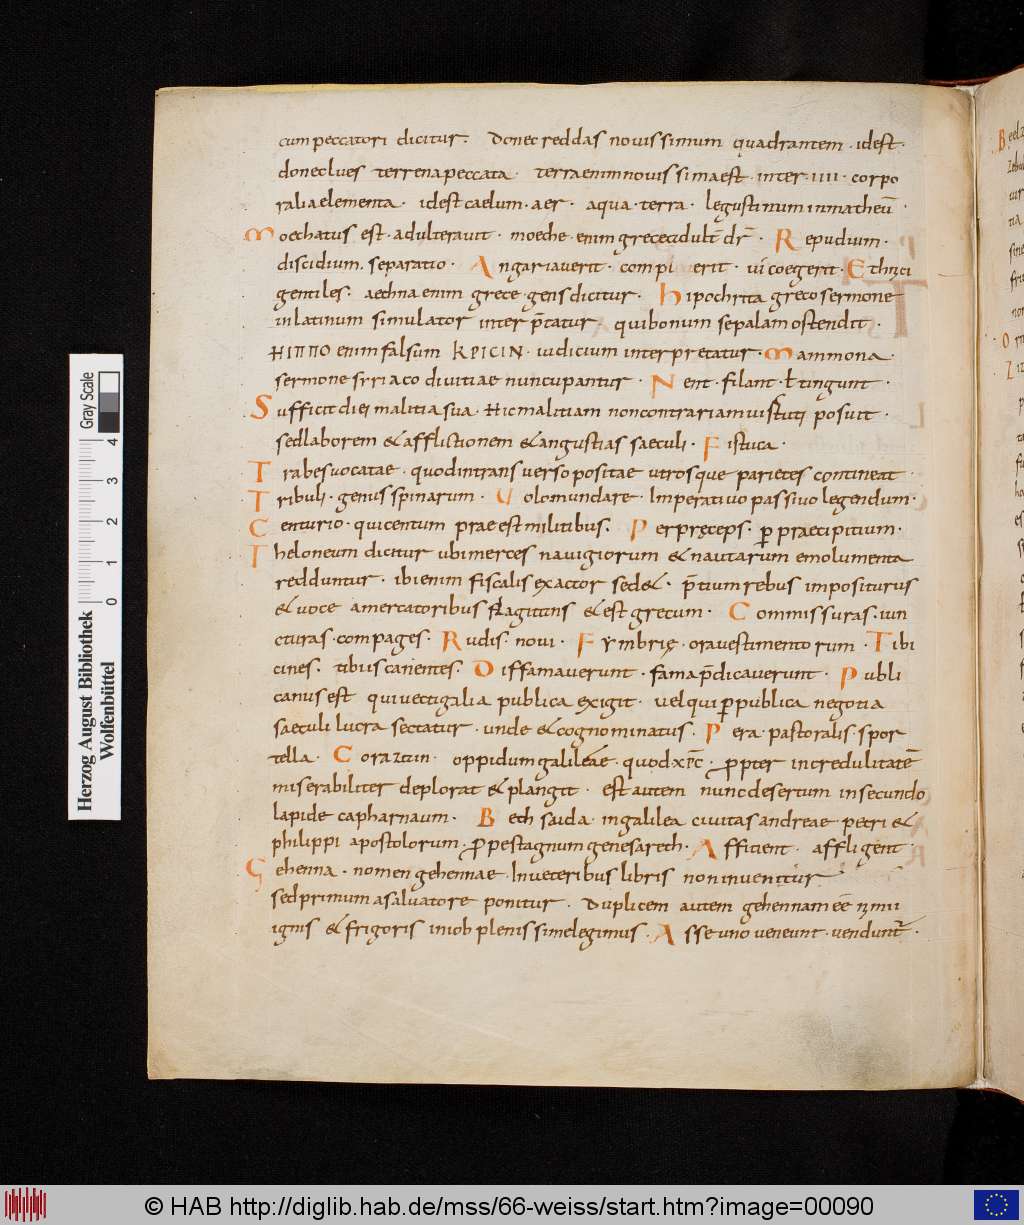 cum peccatori dicitur. Donec reddas novissimum quadrantem · idest ·
donec lves terrena peccata · terra enim novissima est · inter · IIII · corpo
ralia elementa · idest caelum · aer · aqua · terra · legusti num in matheū ·
Moechatus est · adulteravit · moeche enim grece adult̄ dr̄ · Repudium ·
discidium. separatio · Angariaverit · compl erit · ut coegerit · Ethnici
gentiles. aethna enim grece gens dicitur · Hipochrita greco sermone
in latinum simulator inter p̄tatur qui bonum se palam ostendit ·
ΗΙΠΠΟ enim falsum KPICIN · iudicium interpretatur · Mammona ·
sermone syriaco divitiae nuncupantur · Nent · filant · ł tingunt ·
Sufficit diei malitia sua · Hic malitiam non contrariam vistuti posuit ·
sed laborem & afflictionem & angustias saeculi · Fistuca ·
Trabes vocatae · quod in transverso positae utrosque parietes contineat ·
Tribuli · genus spinarum · Volo mundare · Imperativo passivo legendum ·
Centurio · qui centum prae est militibus. Per pręceps. ꝑ praecipitium ·
Theloneum dicitur ubi merces navigiorum & nautarum emolumenta
redduntur · ibi enim fiscalis exactor sed& · p̄tium rebus impositurus
& voce a mercatoribus flagitans & est grecum · Commissuras · iun
cturas · compages. Rudis. novi · Fymbrię · ora vestimentorum · Tibi
cines. tibiis canentes. Diffamaverunt · fama p̄dicaverunt · Publi
canus est qui vectigalia publica exigit · vel qui ꝑ publica negotia
saeculi lucra sectatur · unde & cognominatus. Pera · pastoralis · spor
tella · Corazain · oppidum galileae · quod xp̄c · ꝓpter incredulitatē
miserabiliter deplorat & plangit · est autem nunc desertum in secundo
lapide capharnaum · Bethsaida · in galilea civitas andreae petri &
philippi apostolorum · ꝓpe stagnum genesareth · Afficient · affligent ·
Gehenna · nomen gehennae · In veteribus libris non invenitur
sed primum a salvatore ponitur · Duplicem autem gehennam eē nimii
ignis & frigoris in iob plenissime legimus · Asse uno veneunt · vendunt̄ ·
Herzog August Bibliothek
Wolfenbüttel
0 1 2 3 4
Gray Scale
© HAB http://diglib.hab.de/mss/66-weiss/start.htm?image=00090